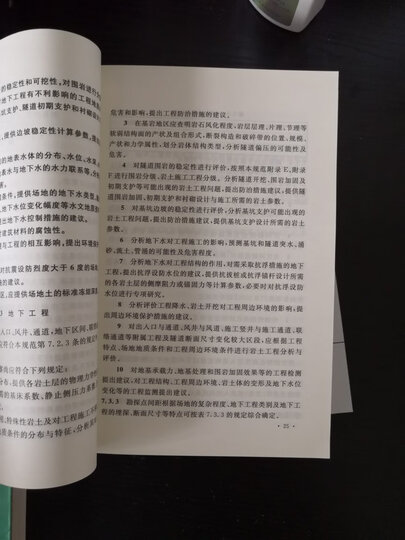 的稳定性和可挖性，对围岩进行
地下工程有不利影响的工程地
坑支护、隧道初期支护和衬砌设
，提供边坡稳定性计算参数，提
的地表水体的分布、水位、水深、
水与地下水的水力联系等，分
条件，提供场地的地下水类型、
地下水位变化幅度等水文地质
水控制措施的建议。
建筑材料的腐蚀性。
工程的相互影响，提出环境
抗震设防烈度大于 6 度的场
的建议。
区，应提供场地土的标准冻结深
3 地 下 工 程
入口、风井、通道、地下区间、联
应符合本规范第 7.2.3 条的规定
察尚应符合下列规定：
提供各岩土层的物理力学
的基床系数、静止侧压力系数
特殊性岩土及对工程施工
质条件的分布与特征，分析其
危害和影响，提出工程防治措施的建议。
3 在基岩地区应查明岩石风化程度，岩层层理、片理、节理等
软弱结构面的产状及组合形式，断裂构造和破碎带的位置、规模、
产状和力学属性，划分岩体结构类型，分析隧道偏压的可能性及
危害。
4 对隧道围岩的稳定性进行评价，按照本规范附录 E、附录
F 进行围岩分级、岩土施工工程分级。分析隧道开挖、围岩加固及
初期支护等可能出现的岩土工程问题，提出防治措施建议，提供隧
道围岩加固、初期支护和衬砌设计与施工所需的岩土参数。
5 对基坑边坡的稳定性进行评价，分析基坑支护可能出现的
岩土工程问题，提出防治措施建议，提供基坑支护设计所需的岩土
参数。
6 分析地下水对工程施工的影响，预测基坑和隧道突水、涌
砂、流土、管涌的可能性及危害程度。
7 分析地下水对工程结构的作用，对需采取抗浮措施的地下
工程，提出抗浮设防水位的建议，提供抗拔桩或抗浮锚杆设计所需
的各岩土层的侧摩阻力或锚固力等计算参数，必要时对抗浮设防
水位进行专项研究。
8 分析评价工程降水、岩土开挖对工程周边环境的影响，提
出周边环境保护措施的建议。
9 对出入口与通道、风井与风道、施工竖井与施工通道、联
络通道等附属工程及隧道断面尺寸变化较大区段，应根据工程
特点、场地地质条件和工程周边环境条件进行岩土工程分析与
评价。
10 对地基承载力、地基处理和围岩加固效果等的工程检测
提出建议，对工程结构、工程周边环境、岩体的变形及地下水位
变化等的工程监测提出建议。
7.3.3 勘探点间距根据场地的复杂程度、地下工程类别及地下工
程的埋深、断面尺寸等特点可按表 7.3.3 的规定综合确定。
· 25 ·